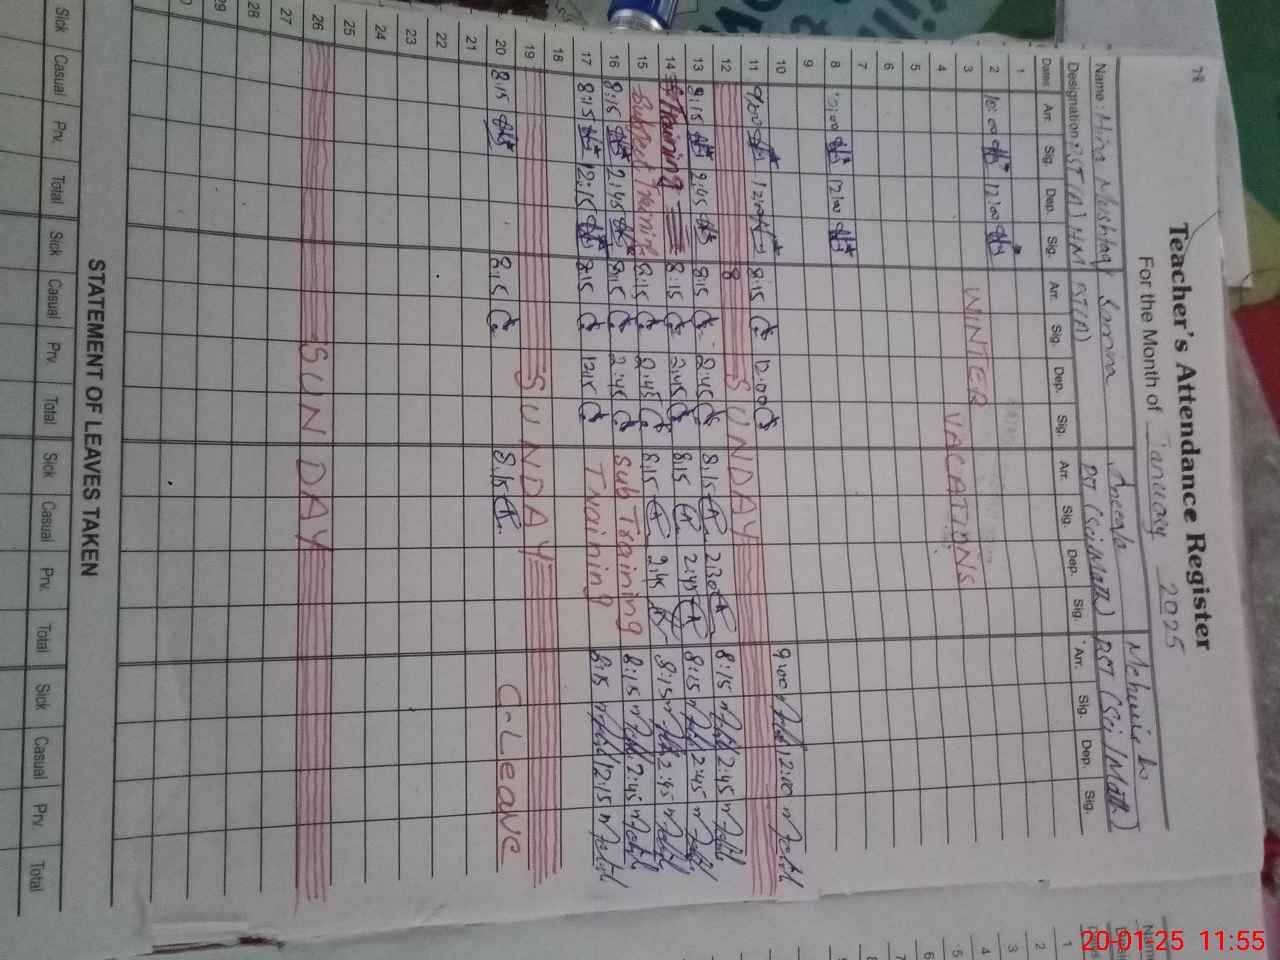 78
Teacher's Attendance Register
For the Month of January 2025
Name: Hina Mushtaq Romina Aneela Mehwish
Designation PST (A) HM PST (A) PST (Sci/Math) PST (Sci/Math)
Dates Arr. Sig. Dep. Sig. Arr. Sig. Dep. Sig. Arr. Sig. Dep. Sig. Arr. Sig. Dep. Sig.
1
2 10:00 12:00
3 WINTER VACATIONS
4
5
6
7
8 10:00 12:00
9
10 9:00 12:00
11 9:00 12:00 8:15 12:00
12 SUNDAY 8:15 2:45
13 8:15 2:45 8:15 2:45 8:15 2:30 8:15 2:45
14 Training 8:15 2:45 8:15 2:45 8:15 2:45
15 Subject Training 8:15 2:45 8:15 2:45 8:15 2:45
16 8:15 2:45 8:15 2:45 Sub Training 8:15 12:15
17 8:15 12:15 8:15 12:15 Training
18
19 SUNDAY
20 8:15 8:15 8:15 C-Leave
21
22
23
24
25
26 SUNDAY
27
28
29
30
STATEMENT OF LEAVES TAKEN
Sick Casual Prv. Total Sick Casual Prv. Total Sick Casual Prv. Total Sick Casual Prv. Total
Sick Casual Prv. Total Sick Casual Prv. Total Sick Casual Prv. Total Sick Casual Prv. Total
1
2
3
4
5
6
20-01-25 11:55